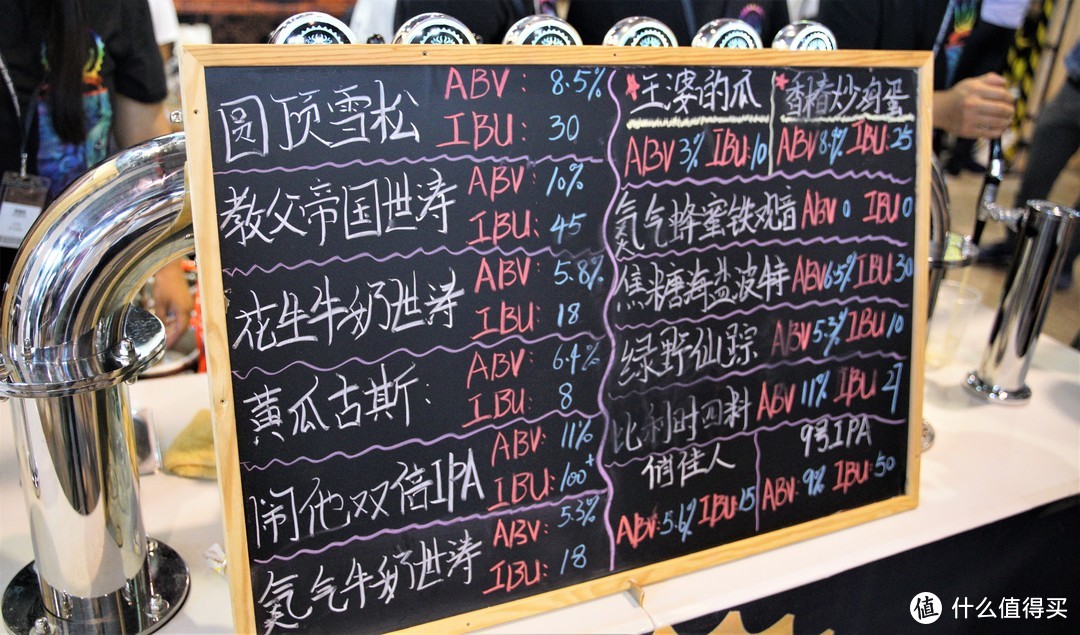 圆顶雪松 ABV: 8.5%
IBU: 30
教父帝国世涛 ABV: 10%
IBU: 45
花生牛奶世涛 ABV: 5.8%
IBU: 18
黄瓜古斯: ABV: 6.4%
IBU: 8
闹他双倍IPA ABV: 11%
IBU: 100+
氮气牛奶世涛 ABV: 5.3%
IBU: 18
王婆的瓜
ABV 3% IBU: 10
香椿炒鸡蛋
ABV 8.4% IBU: 25
氮气蜂蜜铁观音 ABV 0 IBU 0
焦糖海盐波特 ABV 6.5% IBU: 30
绿野仙踪 ABV 5.3% IBU 10
比利时四料 ABV 11% IBU 27
俏佳人
ABV: 5.6% IBU: 15
9号IPA
ABV: 9% IBU: 50
值 什么值得买